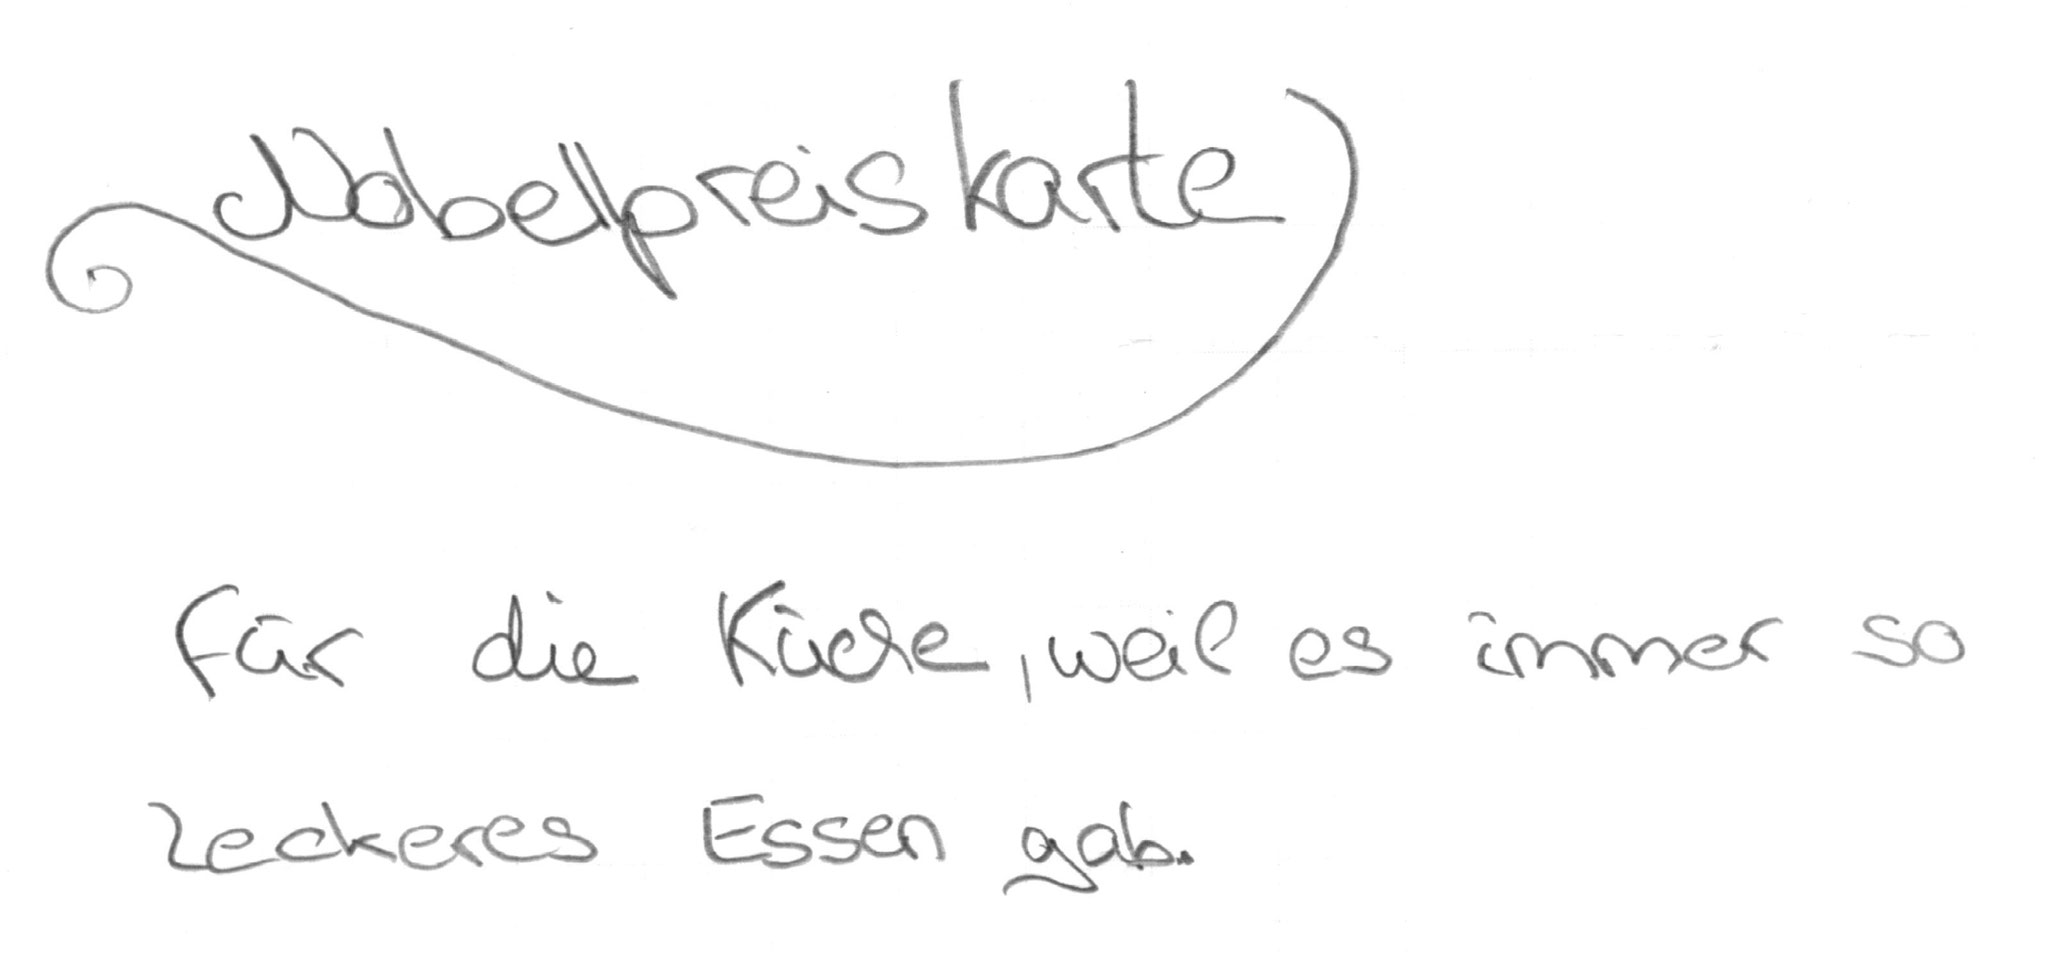 Nobelpreiskarte
für die Küche, weil es immer so
leckeres Essen gab.